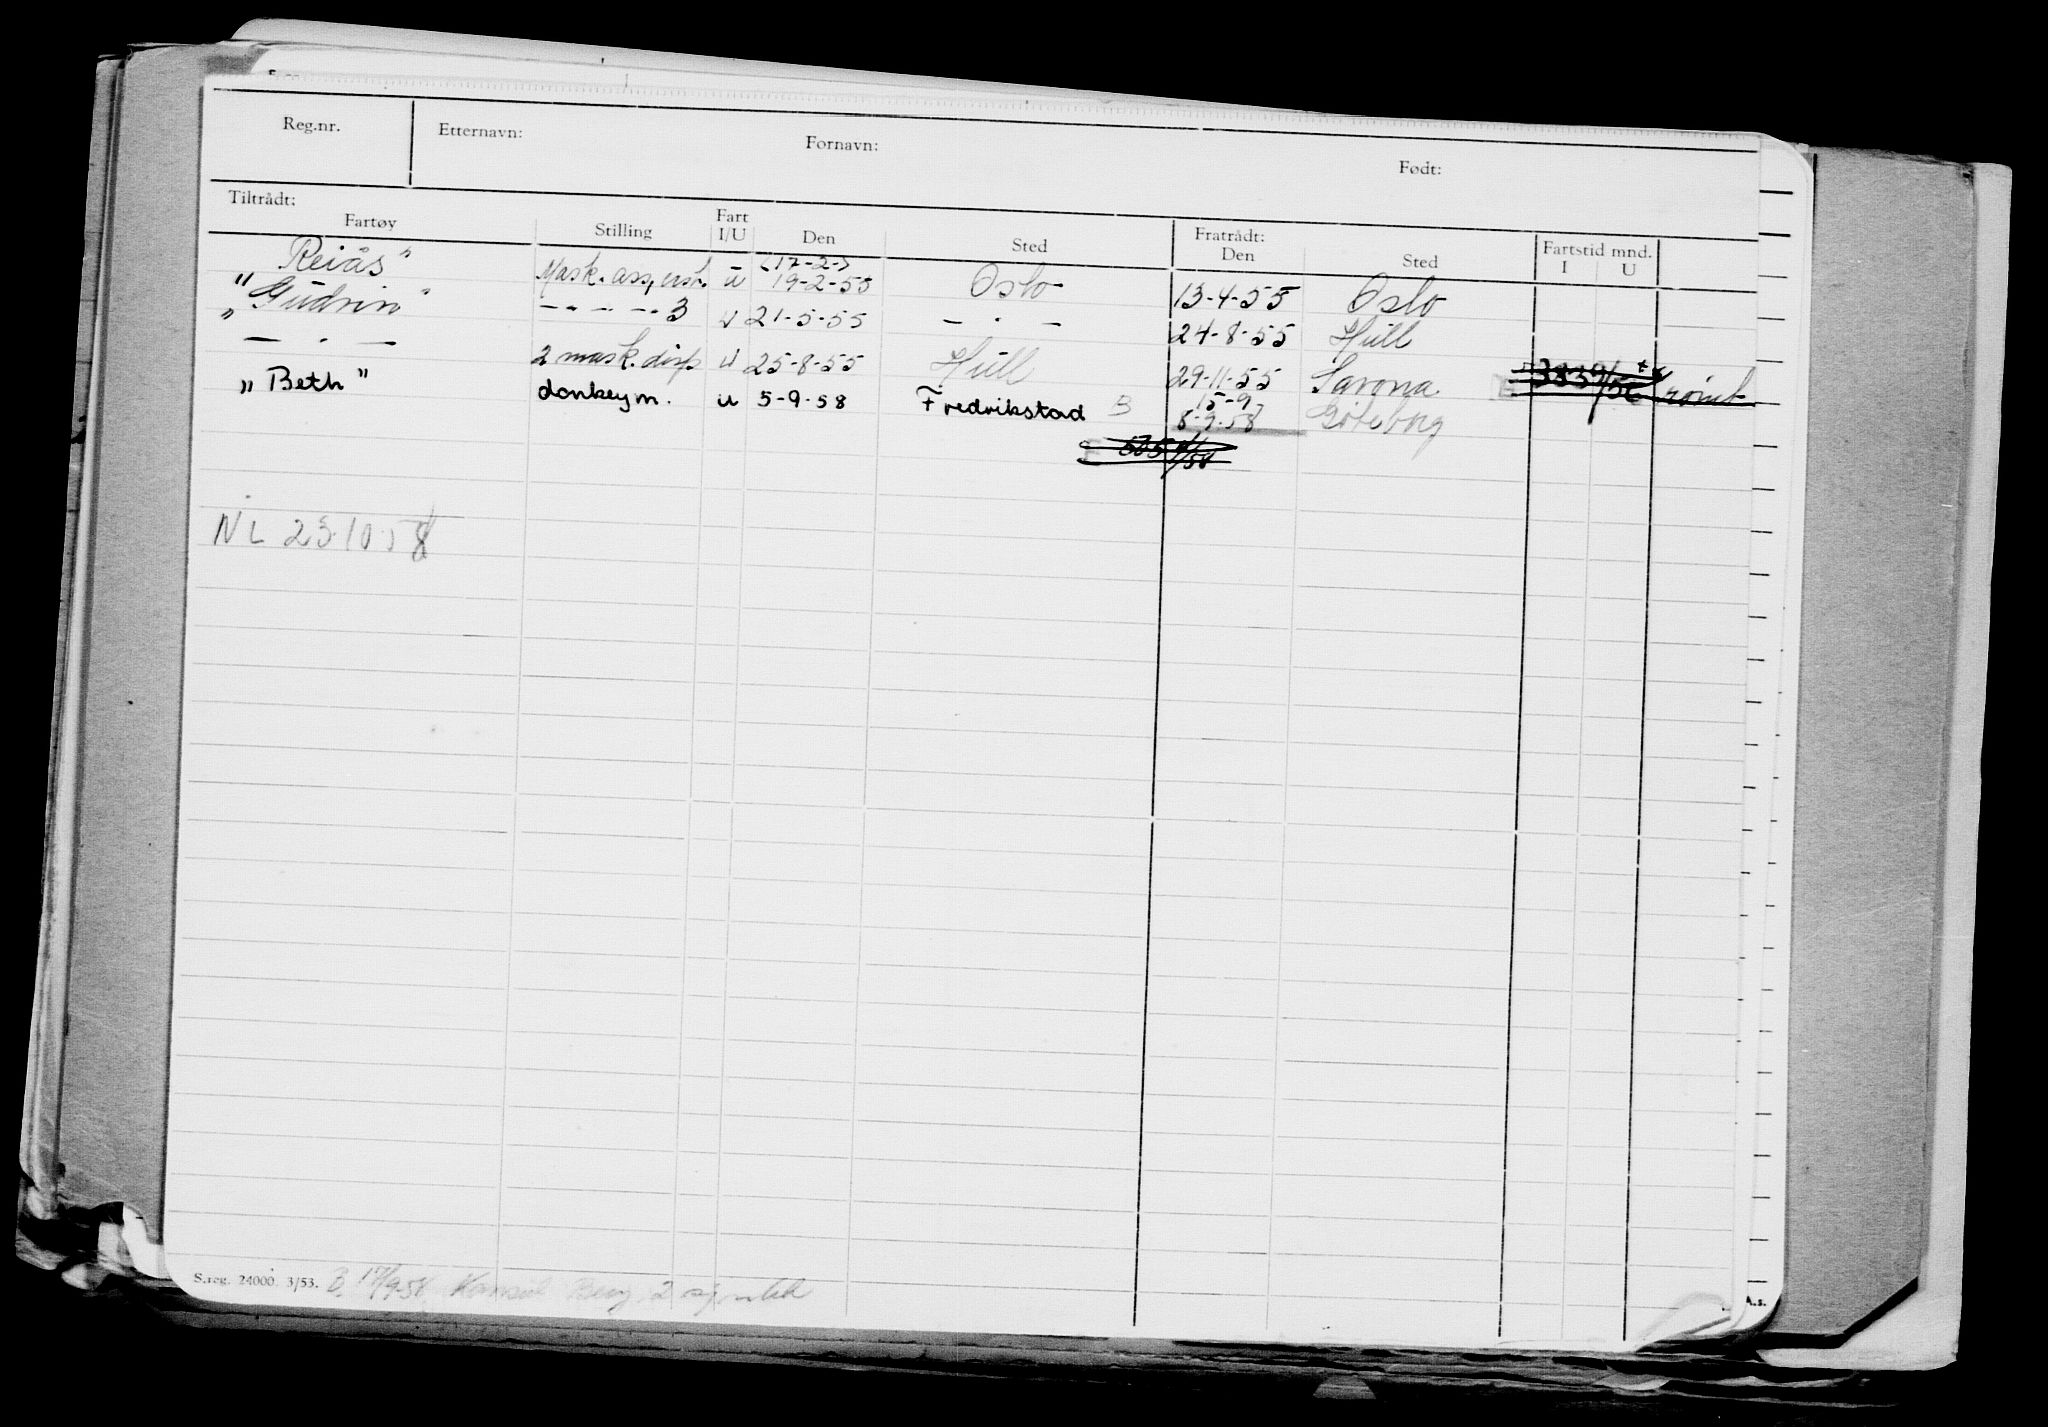 Reg.nr. Etternavn: Fornavn: Født:
Tiltrådt: Fratrådt:
Fartøy Stilling Fart I/U Den Sted Den Sted Fartstid mnd. I U
(17-2-)
"Reiås" Mask. ass, u 19-2-55 Oslo 13-4-55 Oslo
"Gudrun" — " — 3 u 21-5-55 — " — 24-8-55 Hull
— " — 2 mask. disp u 25-8-55 Hull 29-11-55 Savona
"Beth" donkeym. u 5-9-58 Fredrikstad B 15-9- 8-9-58 Göteborg
NL 23.10.58
S.reg. 24000. 3/53. B. 17/9-58 Konsul
A.s.